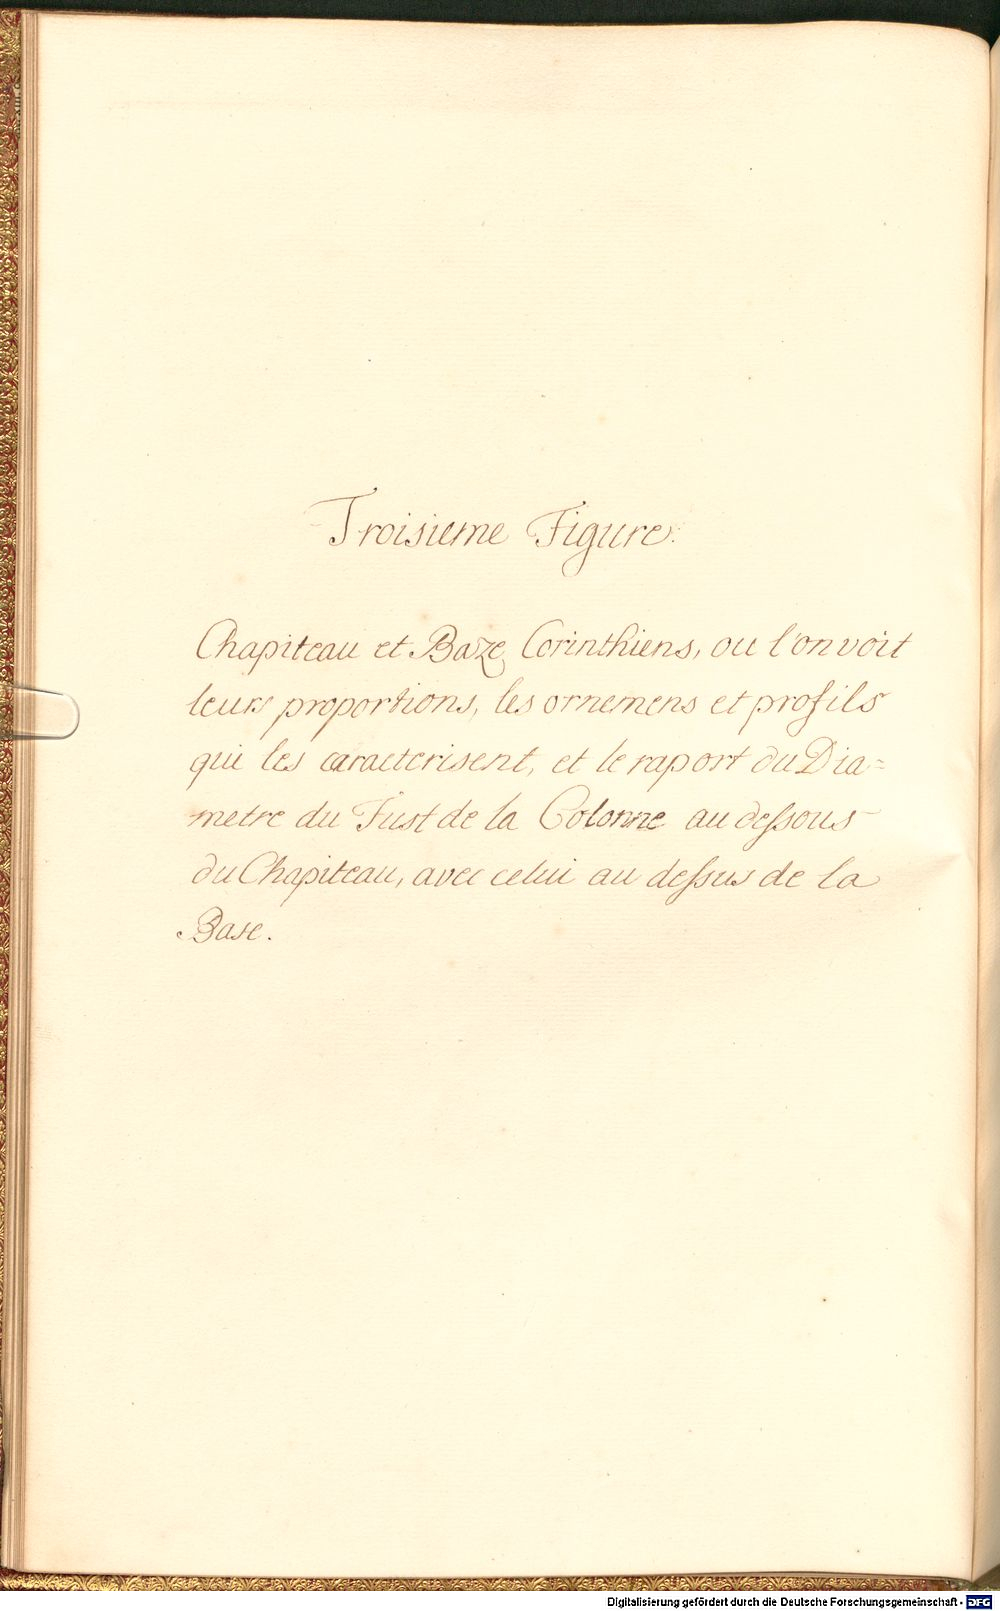 Troisieme Figure.
Chapiteau et Baze Corinthiens, ou l'on voit
leurs proportions, les ornemens et profils
qui les caracterisent, et le raport du Dia=
metre du Fust de la Colonne au dessous
du Chapiteau, avec celui au dessus de la
Base.
Digitalisierung gefördert durch die Deutsche Forschungsgemeinschaft - DFG